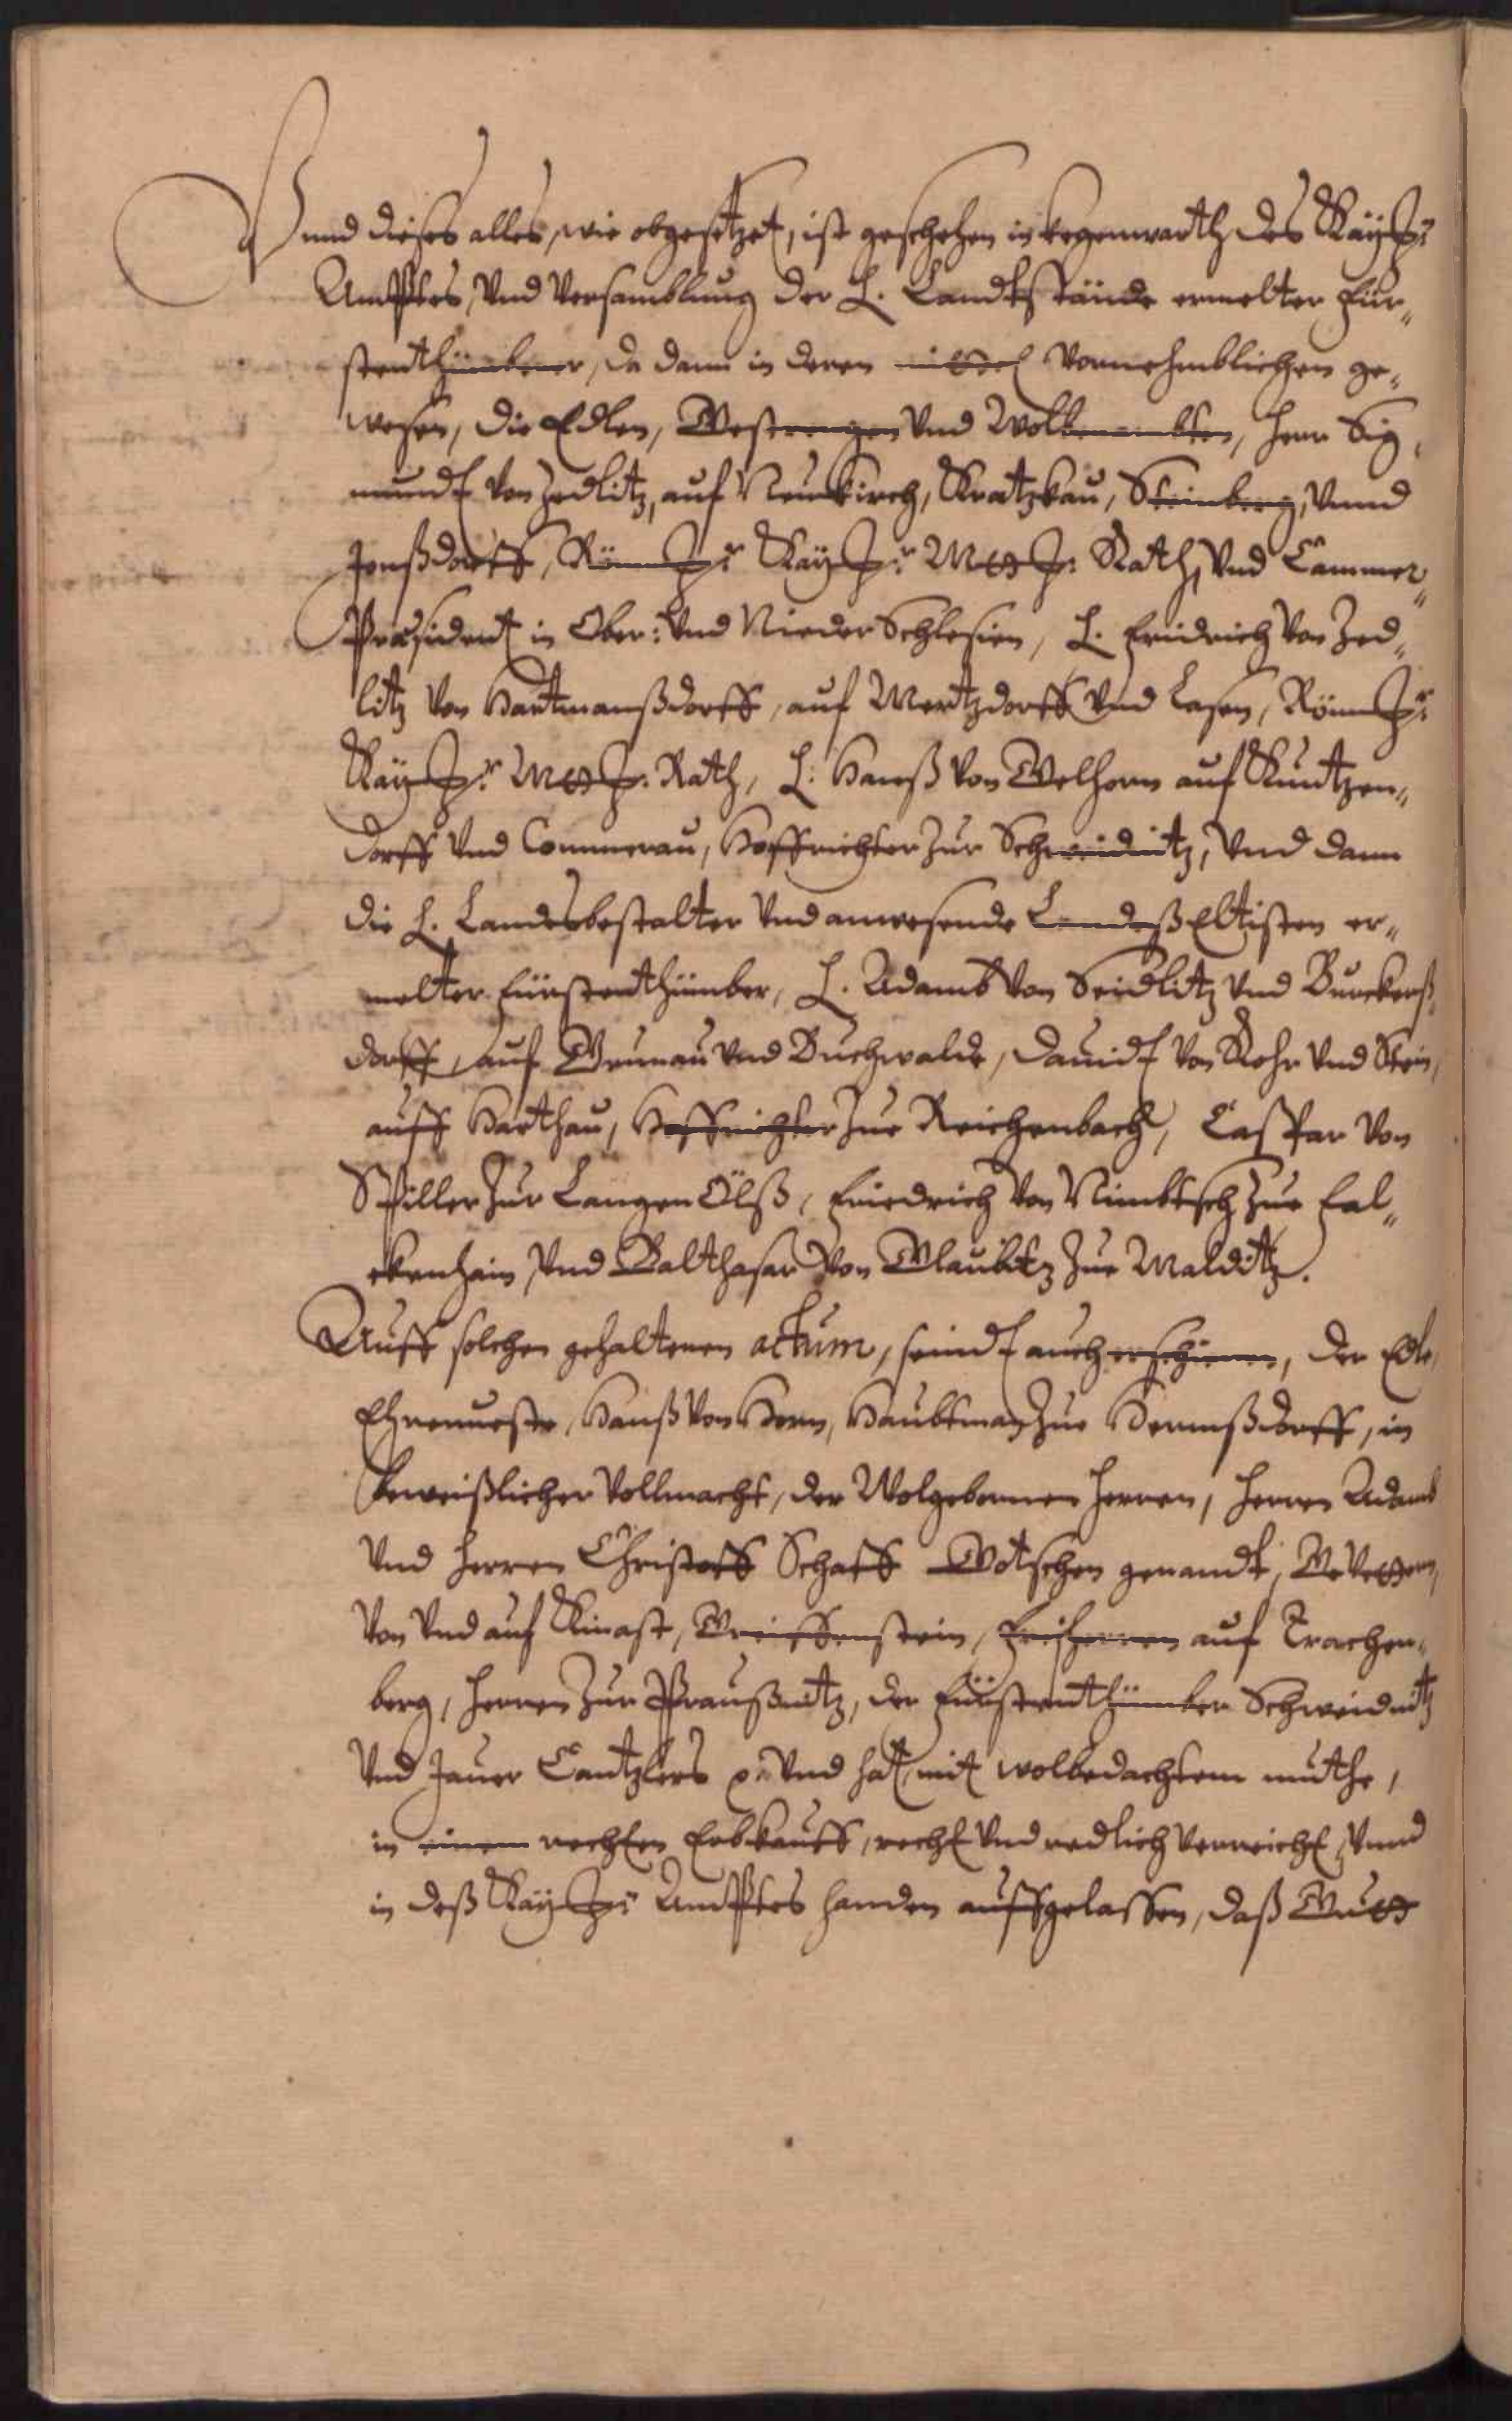 Vnnd dieses alles, wie obgesetzet, ist geschehen in kegenwarth des Kaÿ:
Ambtes, Vnd Versamblung der H. Landtstände ermelter Für„
stenthümber, da dann in deren mittel Vornehmblichen ge„
wesen, die Edlen, Gestrengen Vnd Wolbenambten, Herr Sig„
mundt Von Zedlitz, auf Neukirch, Kratzkau, Steinberg, Vnnd
Jenßdorff, Röm: Kaÿ: Maÿ: Rath, Vnd Cammer„
Præsident in Ober: Vnd Nieder Schlesien, H. Fridrich Von Zed„
litz Von Hartmanßdorff, auf Mertzdorff Vnd Lasen, Röm:
Kaÿ: Maÿ: Rath, H: Hanß Von Gelhorn auf Kuntzen„
dorff Vnd Commerau, Hoffrichter Zur Schweidnitz, Vnd dann
die H. Landesbestalter Vnd anwesende Landeß Eltisten er„
melter Fürstenthümber, H. Adamb Von Seidlitz Vnd Burckerß„
dorff, auf Grunau Vnd Buchwalde, Dauidt Von Rohr Vnd Stein,
auff Harthau, Hoffrichter Zue Reichenbach, Caspar Von
Spiller Zur Langen Ölß, Friedrich Von Nimbtsch Zue Fal„
ckenhain, Vnd Balthasar Von Glaubitz Zue Malditz.
Auff solchen gehaltenen actum, seindt auch erschienen, der Edle,
Ehrenueste, Hanß Von Horn, Haubtman Zue Hermßdorff, in
beweißlicher Vollmacht, der Wolgebornen Herren, Herren Adamb
Vnd Herren Christoff Schaff Gotschen genandt, Gevettern,
Von Vnd auf Kinast, Greiffenstein, Freiherren auf Trachen„
berg, Herren Zur Praußnitz, der Fürstenthümber Schweidnitz
Vnd Jauer Cantzlers ꝛc Vnd hat, mit wolbedachtem muthe,
in einem rechten Erbkauff, recht Vnd redlich Verreicht, Vnnd
in deß Kaÿ: Ambtes handen auffgelassen, daß Gutt